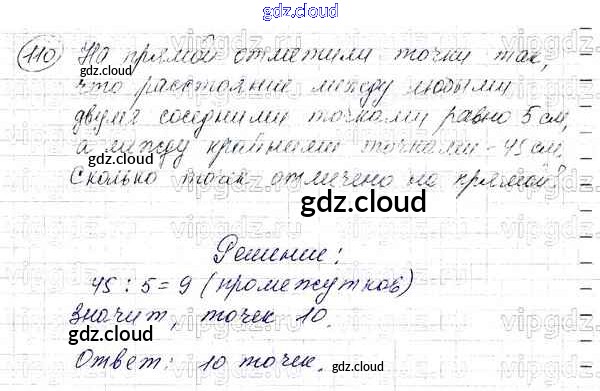 gdz.cloud
110 На прямой отметили точки так,
gdz.cloud
что расстояние между любыми
двумя соседними точками равно 5 см,
а между крайними точками - 45 см.
gdz.cloud
Сколько точек отмечено на прямой?
gdz.cloud
Решение:
45 : 5 = 9 (промежутков)
gdz.cloud
Значит, точек 10.
Ответ: 10 точек.
gdz.cloud
gdz.cloud